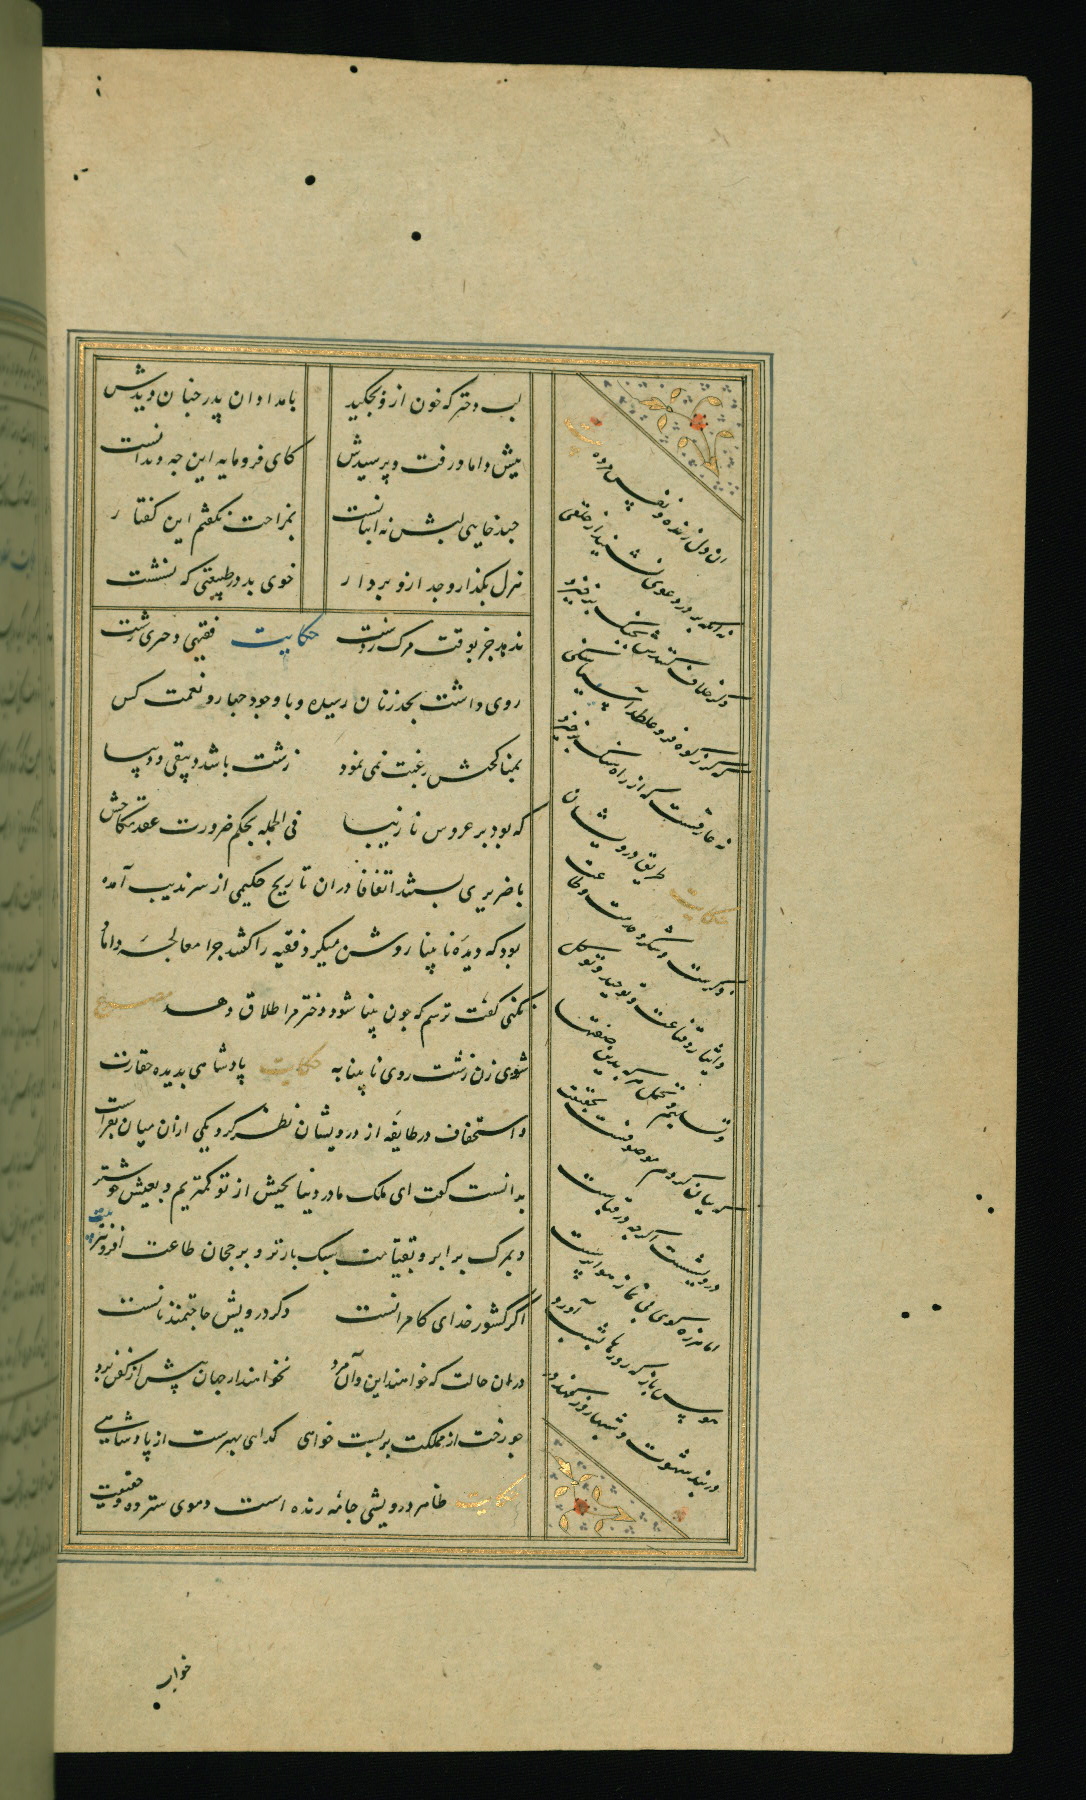 لب دختر که خون ازو بچکید بامدادان پدر چنان دیدش
پیش داماد رفت و پرسیدش کای فرومایه این چه دندانست
چند خایی لبش نه انبانست بمزاحت نگفتم این گفتار
هزل بگذار و جد ازو بردار خوی بد در طبیعتی که نشست
ندهد جز بوقت مرک از دست حکایت فقیهی دختری زشت
روی داشت بحد زنان رسیده و با وجود جهاز و نعمت کس
بمناکحتش رغبت نمی نمود زشت باشد دبیقی و دیبا
که بود بر عروس نازیبا فی الجمله بحکم ضرورت عقد نکاحش
با ضریری ببستند اتفاقا دران تاریخ حکیمی از سرندیب آمده
بود که دیدۀ نابینا روشن میکرد فقیه را گفتند چرا معالجۀ داماد
نکنی گفت ترسم که چون بینا شود دختر مرا طلاق دهد مصرع
شوی زن زشت روی نابینا به حکایت پادشاهی بدیده حقارت
و استخفاف در طایفه از درویشان نظر کرد یکی ازان میان بفراست
بدانست گفت ای ملک ما در دنیا بجیش از تو کمتریم و بعیش خوشتر
و بمرک برابر و بقیامت سبک بارتر و برجحان طاعت افزونتر بیت
اگر کشور خدای کامرانست وگر درویش حاجتمند نانست
دران حالت که خواهند این و آن مرد نخواهند از جهان بیش از کفن برد
چو رخت از مملکت بربست خواهی گدایی بهترست از پادشاهی
حکایت ظاهر درویشی جامه زنده است و موی سترده و حقیقت
ان دل زنده و نفس مرده بیت
نه آنکه بر در دعوی نشیند از خلقی
وگر خلاف کنندش بجنگ برخیزد
که گر ز کوه فرو غلطد آسیا سنگی
نه عارفست که از راه سنگ برخیزد
حکایت طریق درویشان
ذکرست و شکر و خدمت و طاعت
و ایثار و قناعت و توحید و توکل
و تسلیم و تحمل هر که بدین صفتها
که بیان کردم موصوفست بحقیقت
درویشست اگرچه در قباست
اما هرزه گوی بی نماز هواپرست
هوس باز که روزها بشب آورد
در بند شهوت و شبها روز کند در
خواب